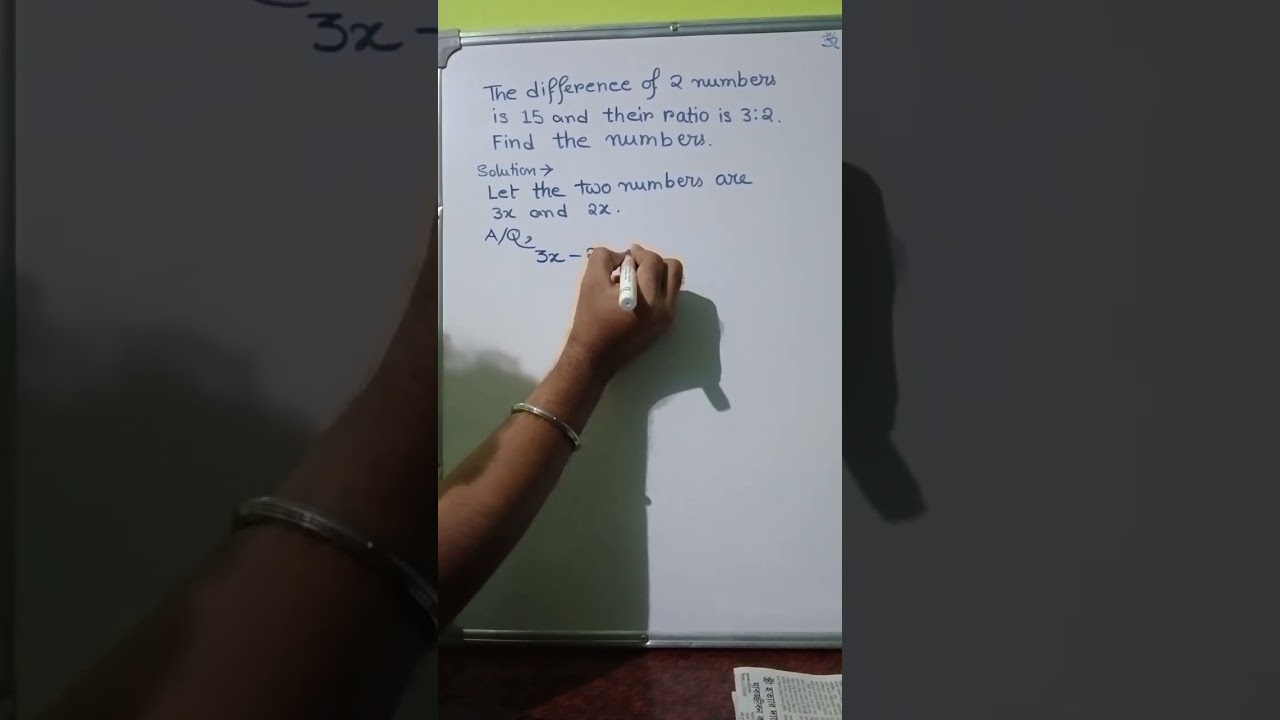 The difference of 2 numbers
is 15 and their ratio is 3:2.
Find the numbers.
Solution →
Let the two numbers are
3x and 2x.
A/Q,
3x -
3x -